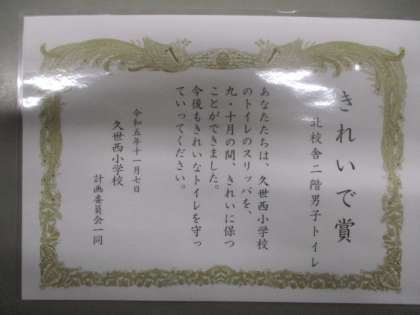 きれいで賞
北校舎二階男子トイレ
あなたたちは、久世西小学校
のトイレのスリッパを、
九・十月の間、きれいに保つ
ことができました。
今後もきれいなトイレを守っ
ていってください。
令和五年十一月七日
久世西小学校
計画委員会一同